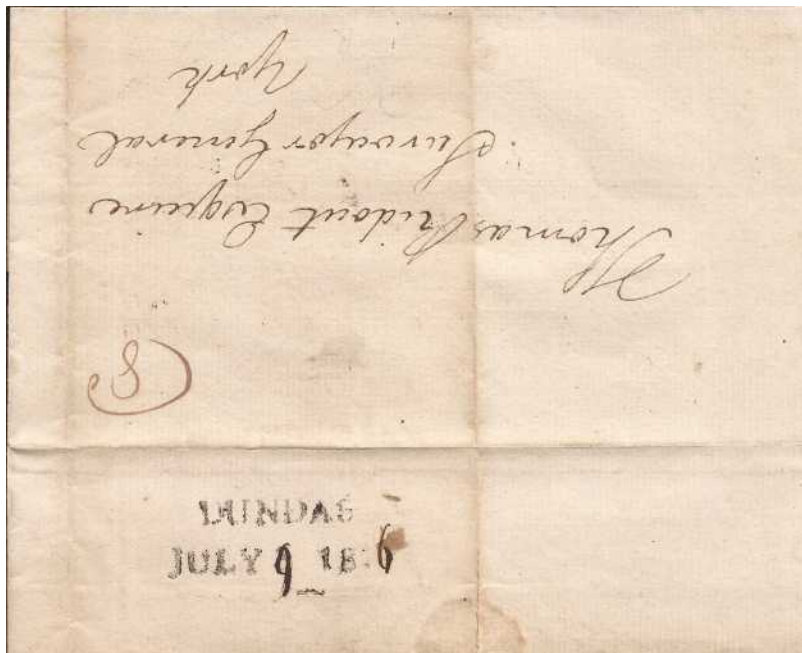 Thomas Ridout Esquire
Surveyor General
York
8
DUNDAS
JULY 9 18 6